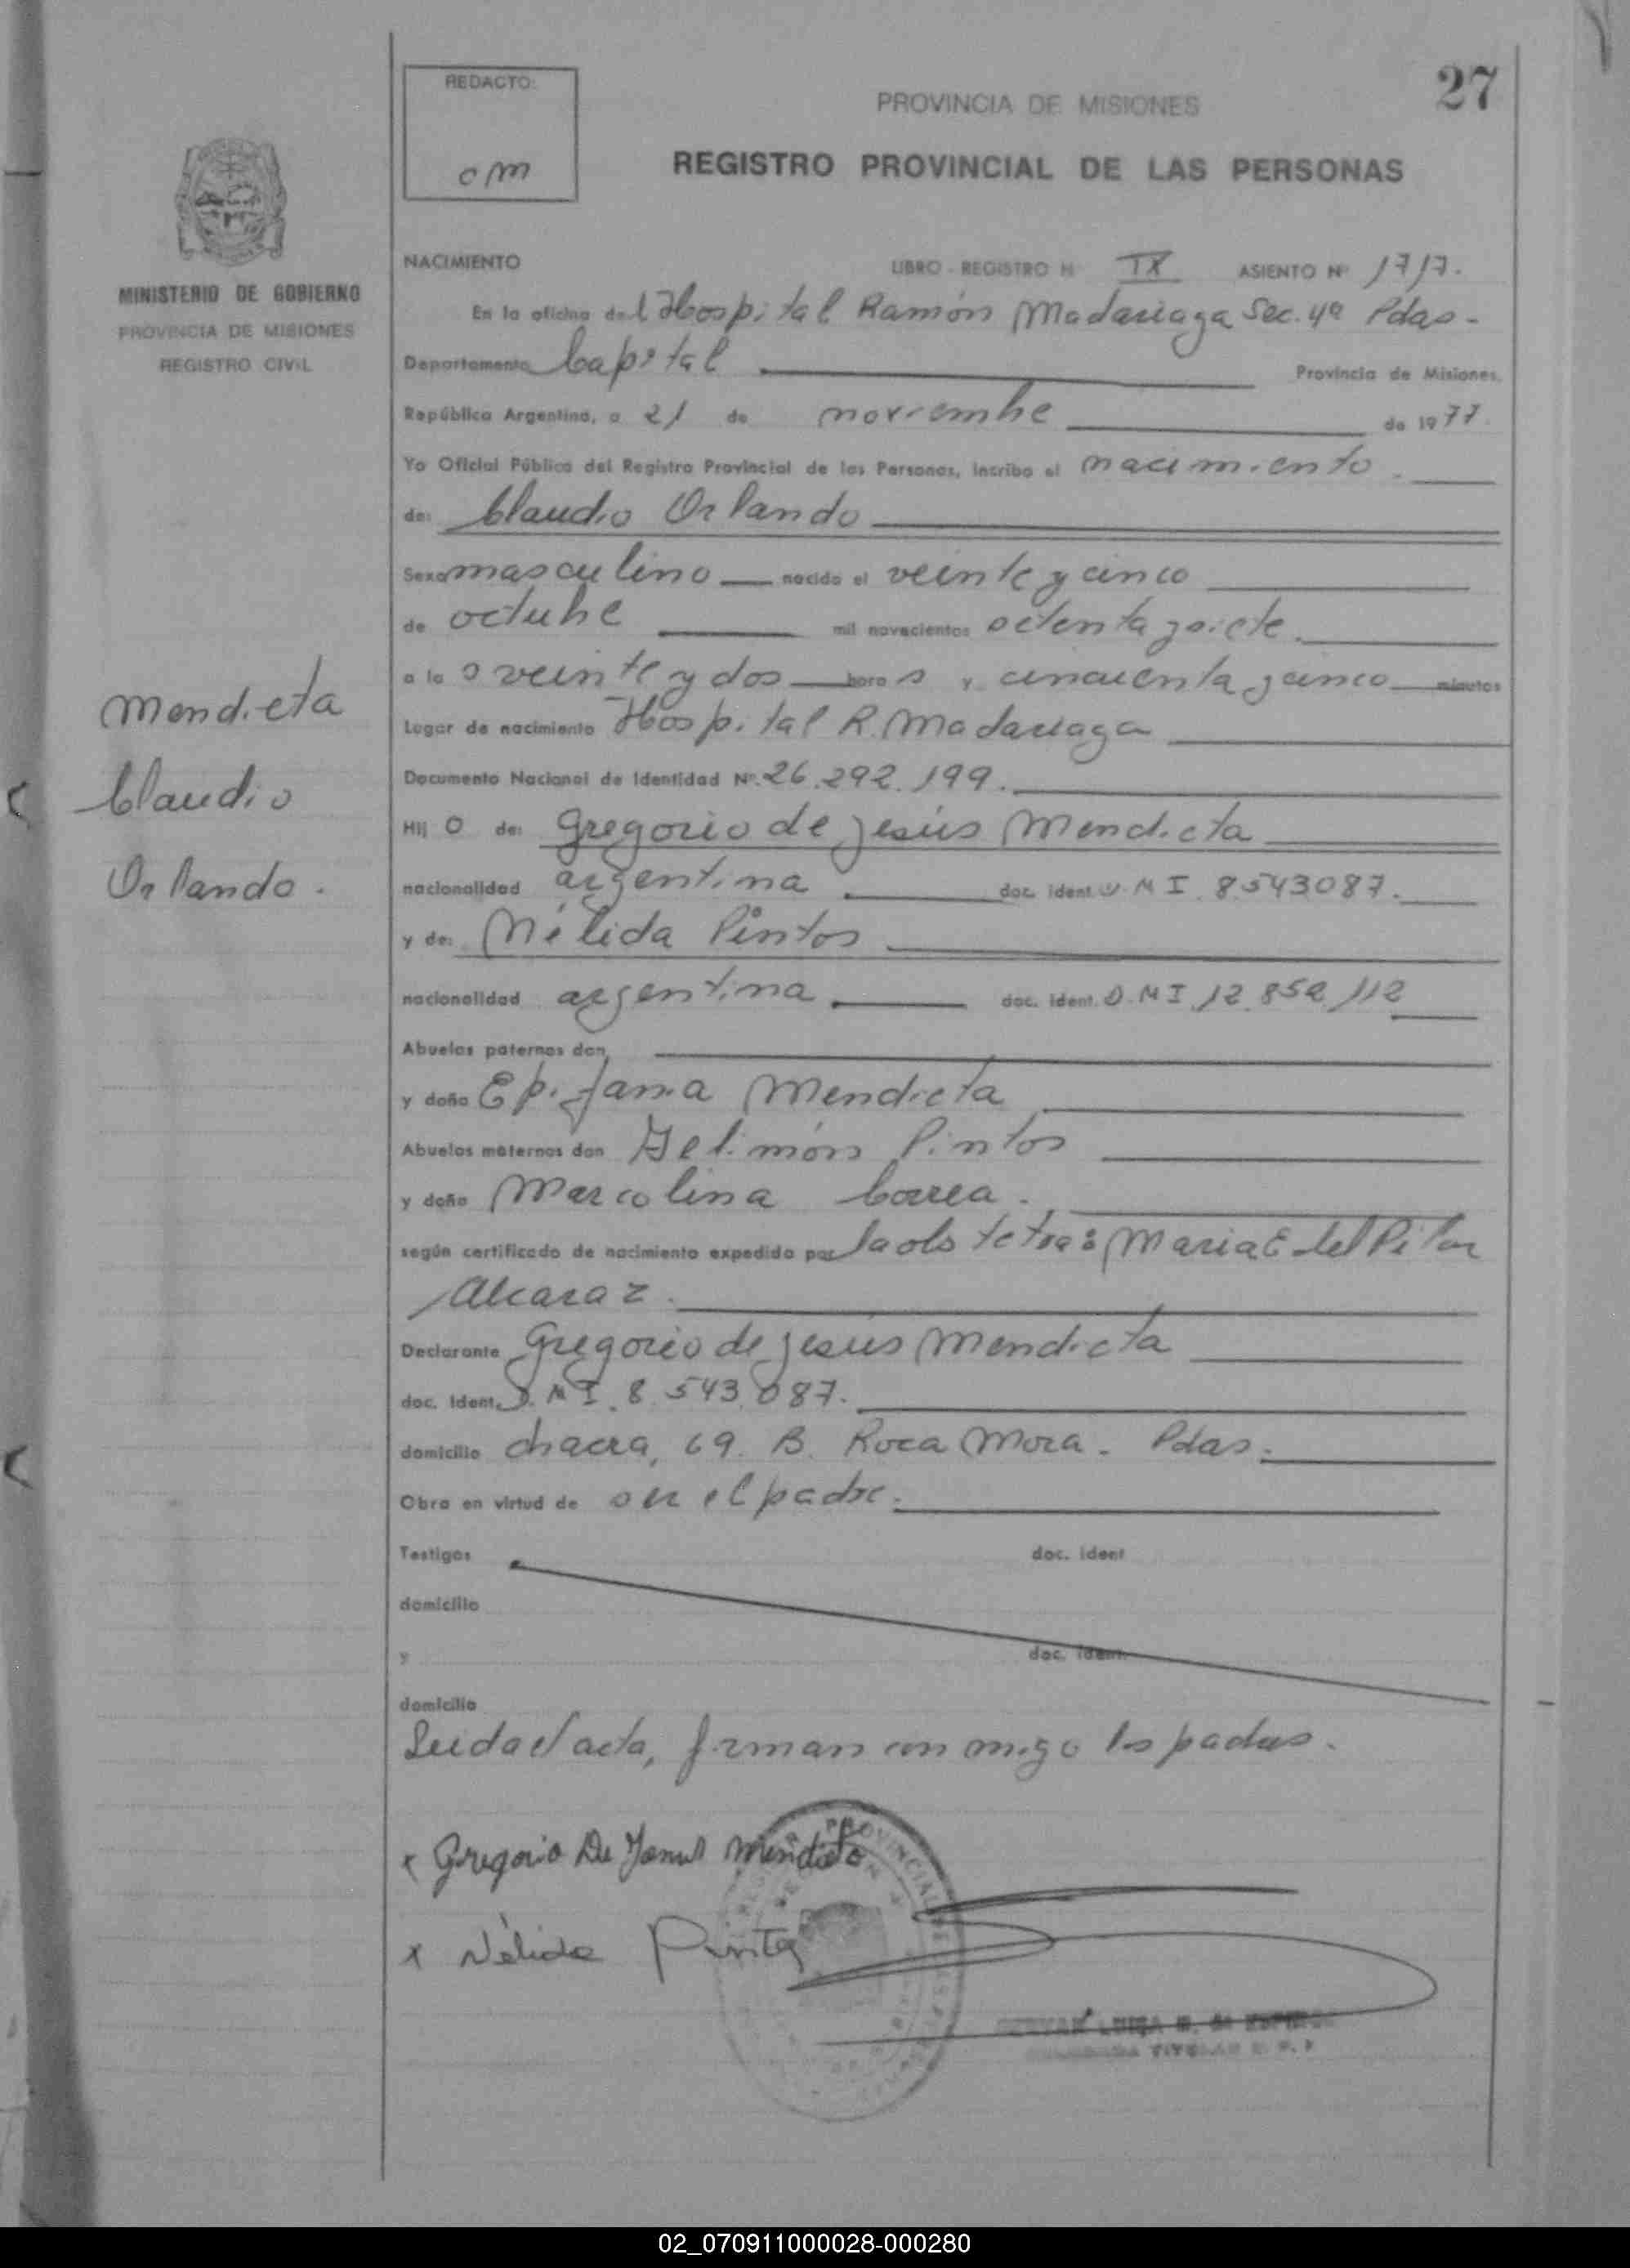 27
REDACTO:
om
PROVINCIA DE MISIONES
REGISTRO PROVINCIAL DE LAS PERSONAS
MINISTERIO DE GOBIERNO
PROVINCIA DE MISIONES
REGISTRO CIVIL
NACIMIENTO LIBRO - REGISTRO N° IX ASIENTO N° 1717.
En la oficina del Hospital Ramón Madariaga Sec. 4ª Pdas-
Departamento Capital Provincia de Misiones,
República Argentina, a 21 de noviembre de 1977.
Yo Oficial Público del Registro Provincial de las Personas, incribo el nacimiento
de: Claudio Orlando
Sexo masculino nacido el veinte y cinco
de octubre mil novecientos setenta y siete
a las veinte y dos horas y cincuenta y cinco minutos
Lugar de nacimiento Hospital R. Madariaga
Documento Nacional de Identidad N° 26.292.199.
Hijo de: Gregorio de Jesús Mendieta
nacionalidad argentina doc. ident. D.M I. 8543087.
y de: Nélida Pintos
nacionalidad argentina doc. ident. D.M I 12.852.112
Abuelos paternos don
y doña Epifania Mendieta
Abuelos maternos don Delimón Pintos
y doña Marcolina Correa.
según certificado de nacimiento expedido por la obstetra: Maria E del Pilar
Alcaraz.
Declarante Gregorio de Jesús Mendieta
doc. ident. D. M I. 8.543.087.
domicilio chacra, 69. B. Roca Mora. Pdas.
Obra en virtud de ser el padre.
Testigos doc. ident
domicilio
y doc. ident.
domicilio
Leida el acta, firman conmigo los padres.
Mendieta
Claudio
Orlando.
x Gregorio De Jesus Mendieta
x Nélida Pintos
02_070911000028-000280